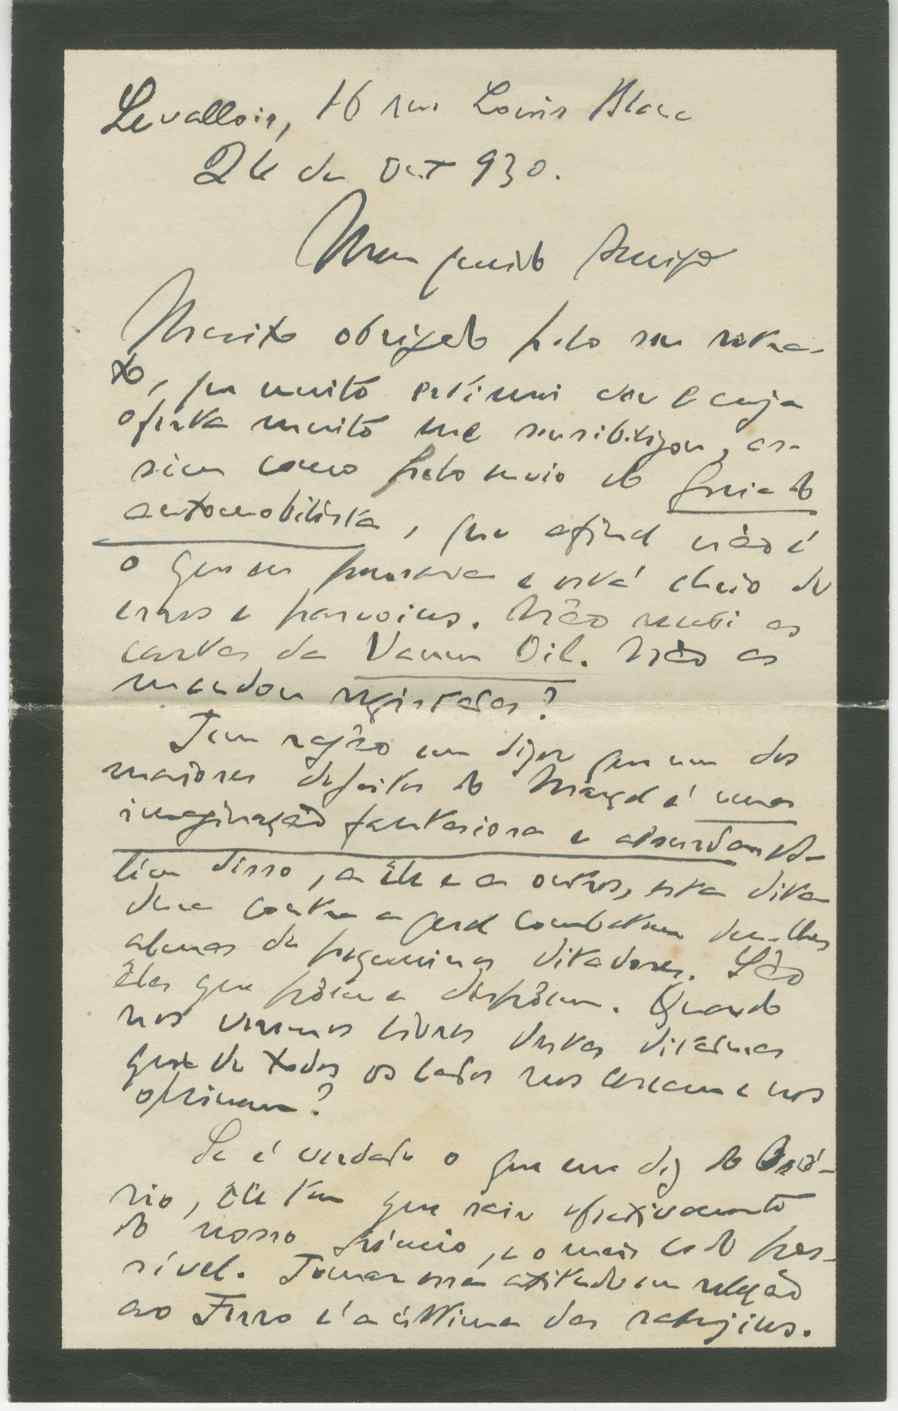 Levallois, 16 rue Louis Blanc
26 de Oct 930.
Meu querido Amigo
Muito obrigado pelo seu retra-
to, que muito estimei e cuja
oferta muito me sensibilizou, as-
sim como pelo envio do Guia do
automobilista, que afinal não é
o que eu pensava e está cheio de
erros e parvoices. Não recebi as
cartas da Vacuum Oil. Não as
mandou registadas?
Tem razão em dizer que um dos
maiores defeitos do é uma
imaginação fantasiosa e absurda
disso, a êle e a outros, esta dita-
dura contra a qual combatem deu-lhes
almas de pequeninos ditadores. São
êles que põem e dispõem. Quando
nos veremos livres destas ditaduras
que de todos os lados nos cercam e nos
oprimem?
Se é verdade o que me diz do Osó-
rio, êle tem que sair efectivamente
do nosso grémio, e o mais cedo pos-
sível. Tomar essa atitude em relação
ao Ferro é a última das sabujices.